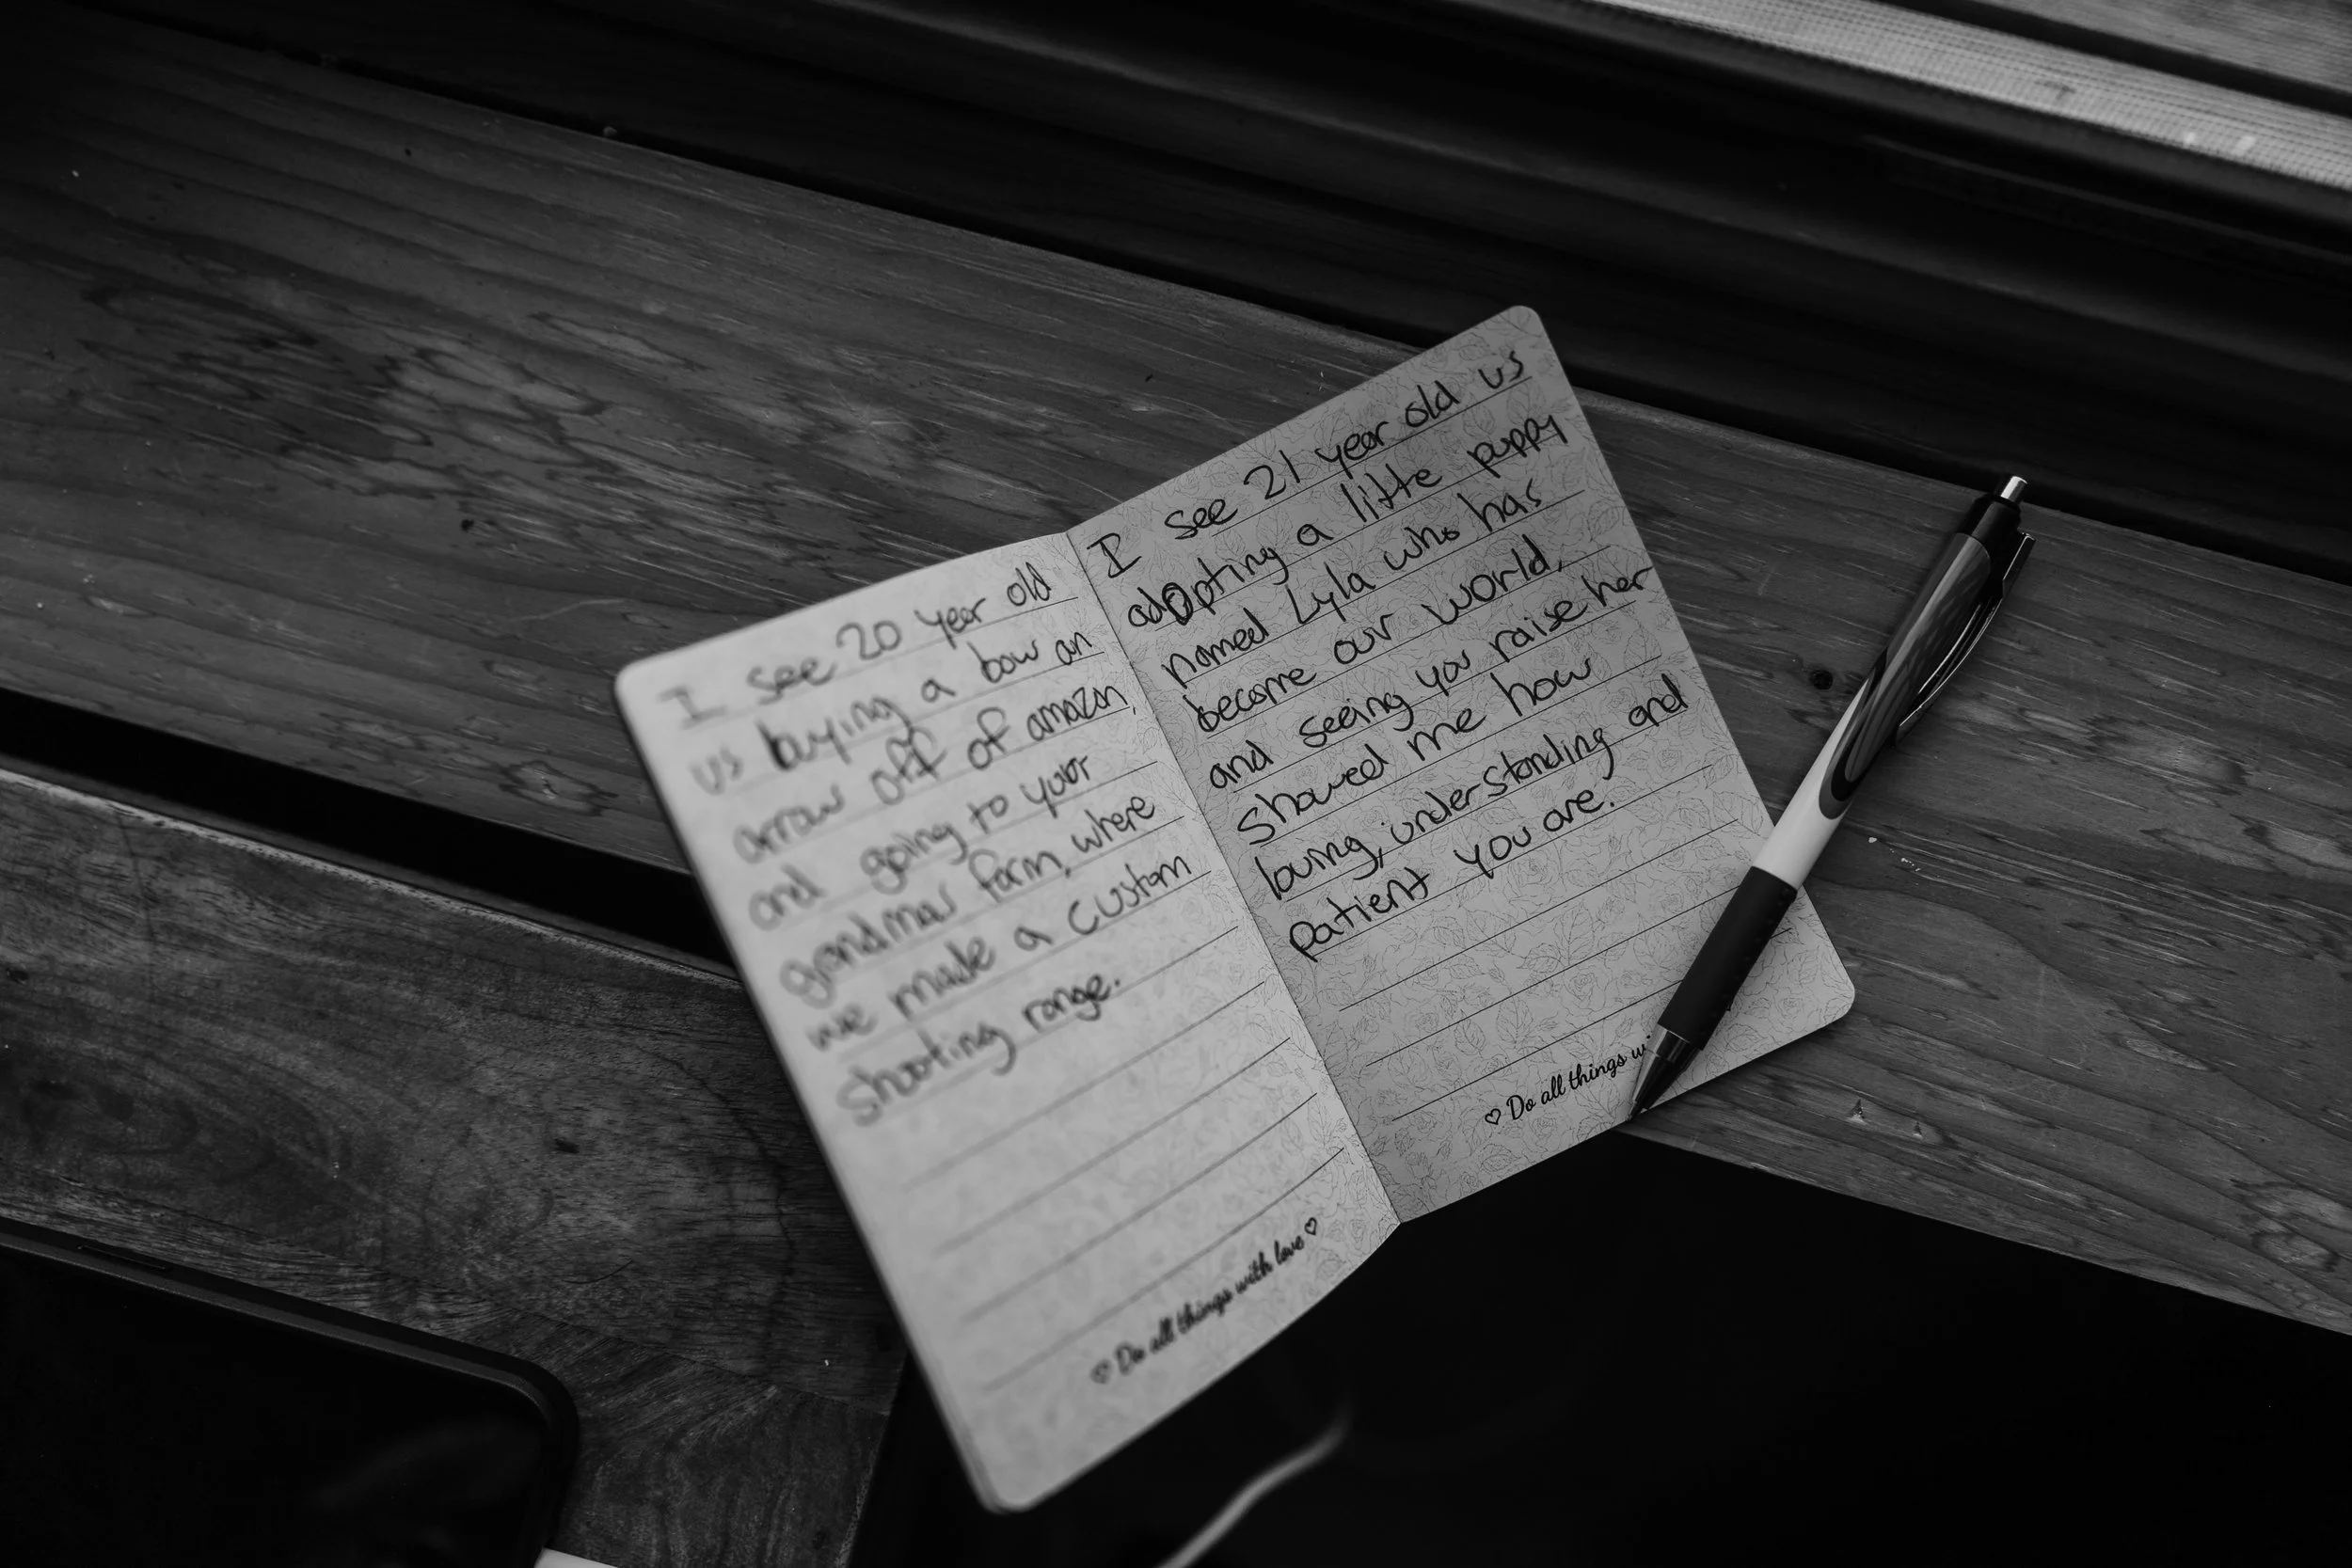 I see 20 year old
us buying a bow an
arrow off of amazon,
and going to your
grandmas farm, where
we made a custom
shooting range.
♡ Do all things with love ♡
I see 21 year old us
adopting a little puppy
named Lyla who has
become our world,
and seeing you raise her
showed me how
loving, understanding and
patient you are.
♡ Do all things wi